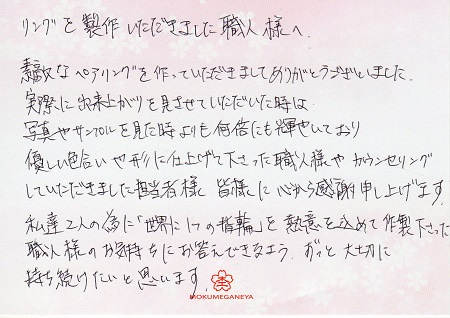 リングを製作いただきました職人様へ
素敵なペアリングを作っていただきましてありがとうございました.
実際に出来上がりを見させていただいた時は
写真やサンプルを見た時よりも何倍にも輝やいており
優しい色合いや形に仕上げて下さった職人様やカウンセリング
していただきました担当者様 皆様に心から感謝申し上げます.
私達2人の為に「世界に1つの指輪」を熱意を込めて作製下さった
職人様のお気持ちにお答えできるよう、ずっと大切に
持ち続けたいと思います.
MOKUMEGANEYA